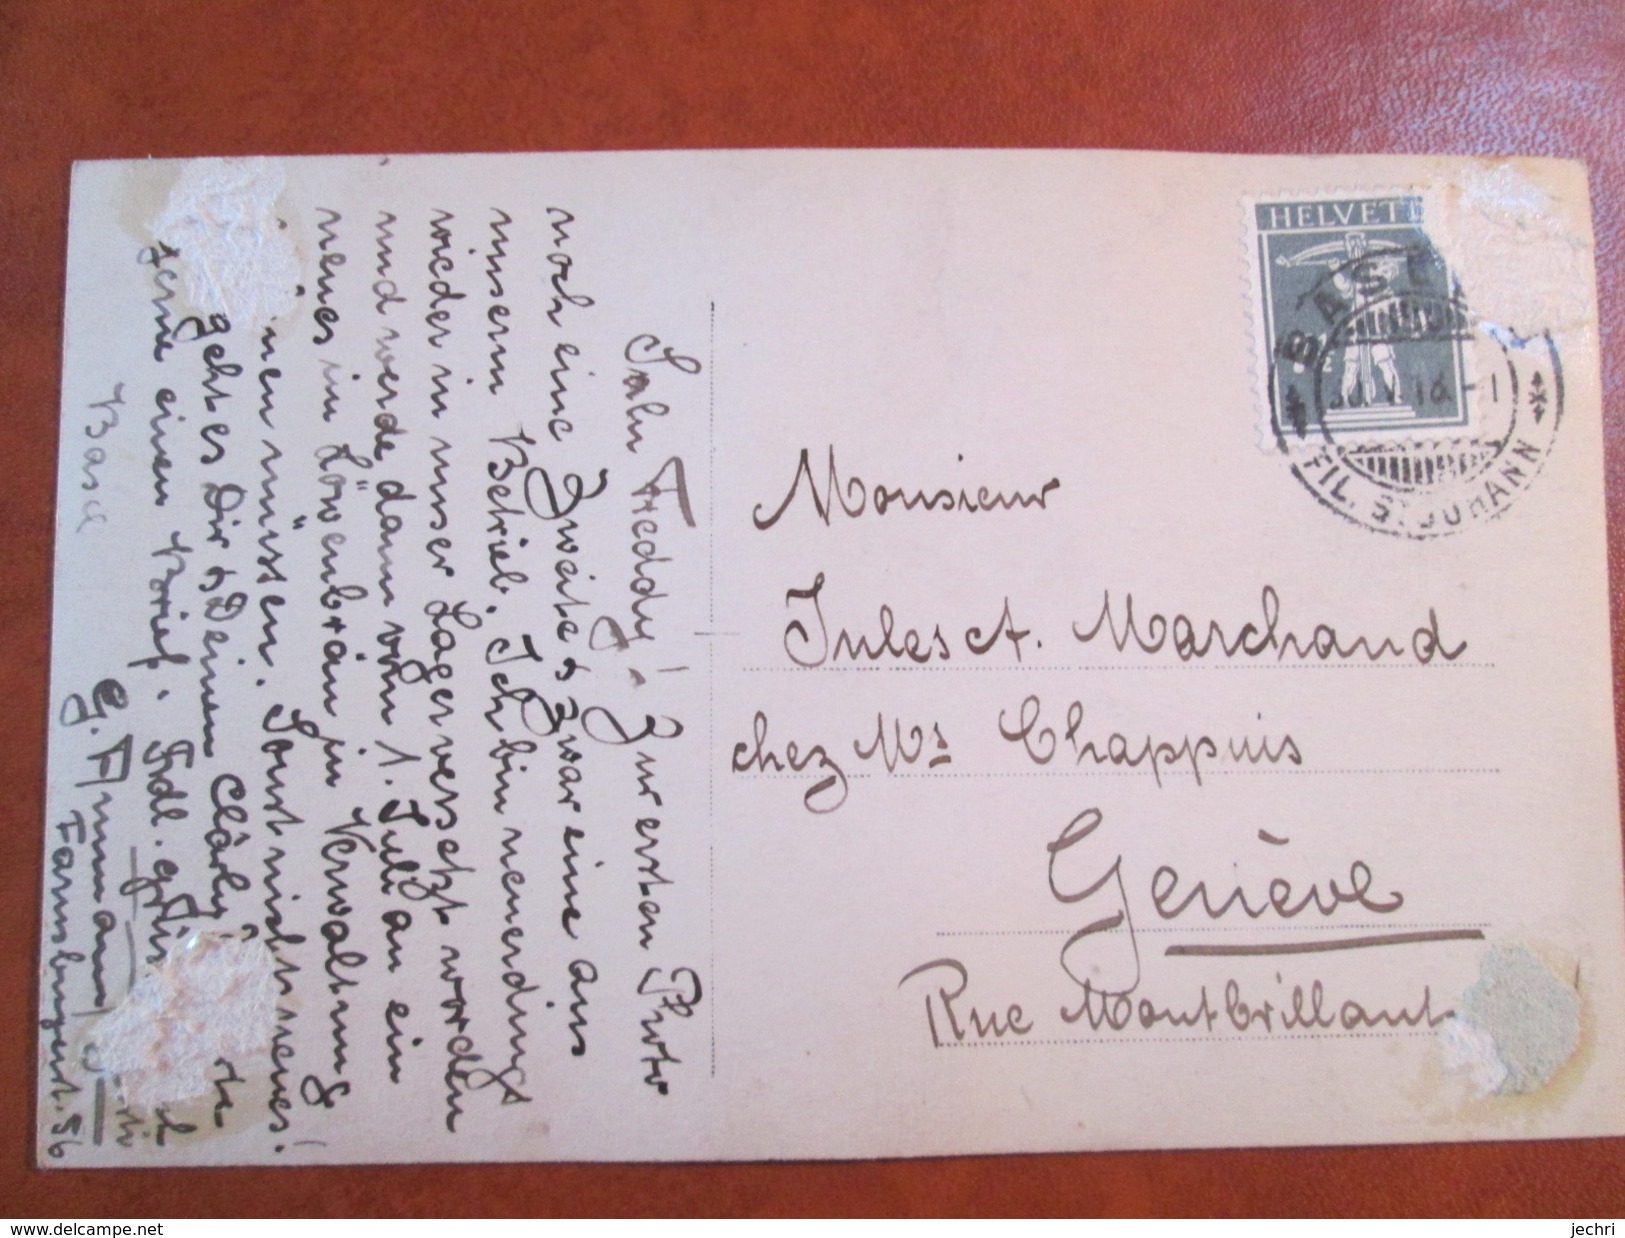 Salu Freddy! Zur ersten Photo
noch eine Zweite & zwar eine aus
unserm Betrieb. Ich bin neuerdings
wieder in unser Lager versetzt worden
und werde dann vom 1. Juli an ein
neues im Löwenbräu in Verwaltung
müssen. Sonst nichts neues!
geht es Dir & Deinem
gerne einen Brief. Frdl.
G. Ammann
Farnsburgerst. 56
Basel
HELVET
BASEL
FIL. ST. JOHANN
Monsieur
Jules A. Marchand
chez Ms Chappuis
Genève
Rue Montbrillant
www.delcampe.net
jechri